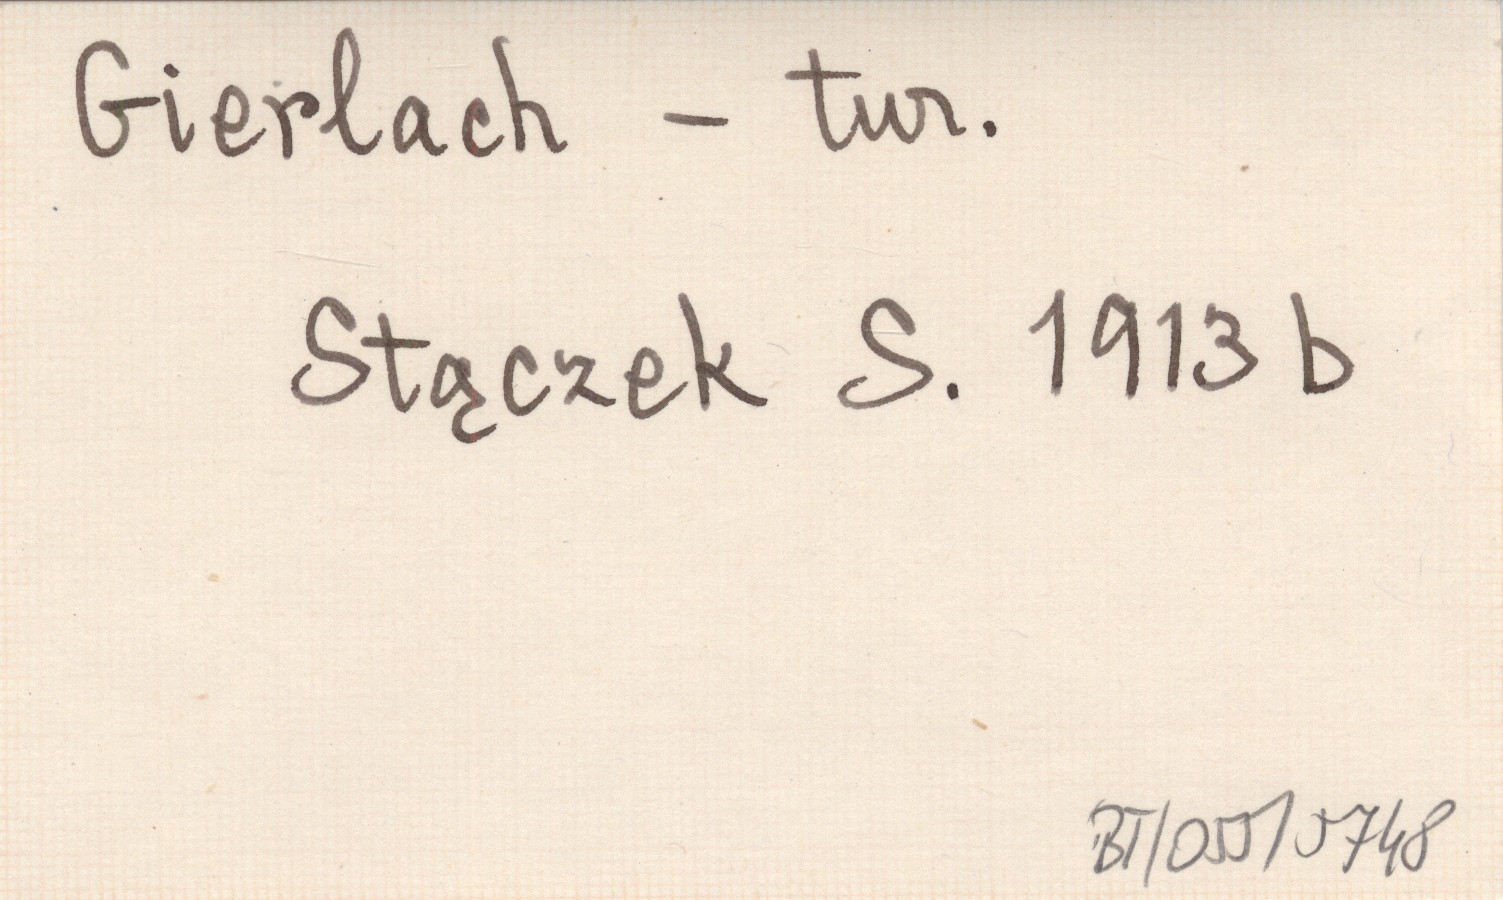 Gierlach - tur.
Stączek S. 1913 b
BT/055/5748